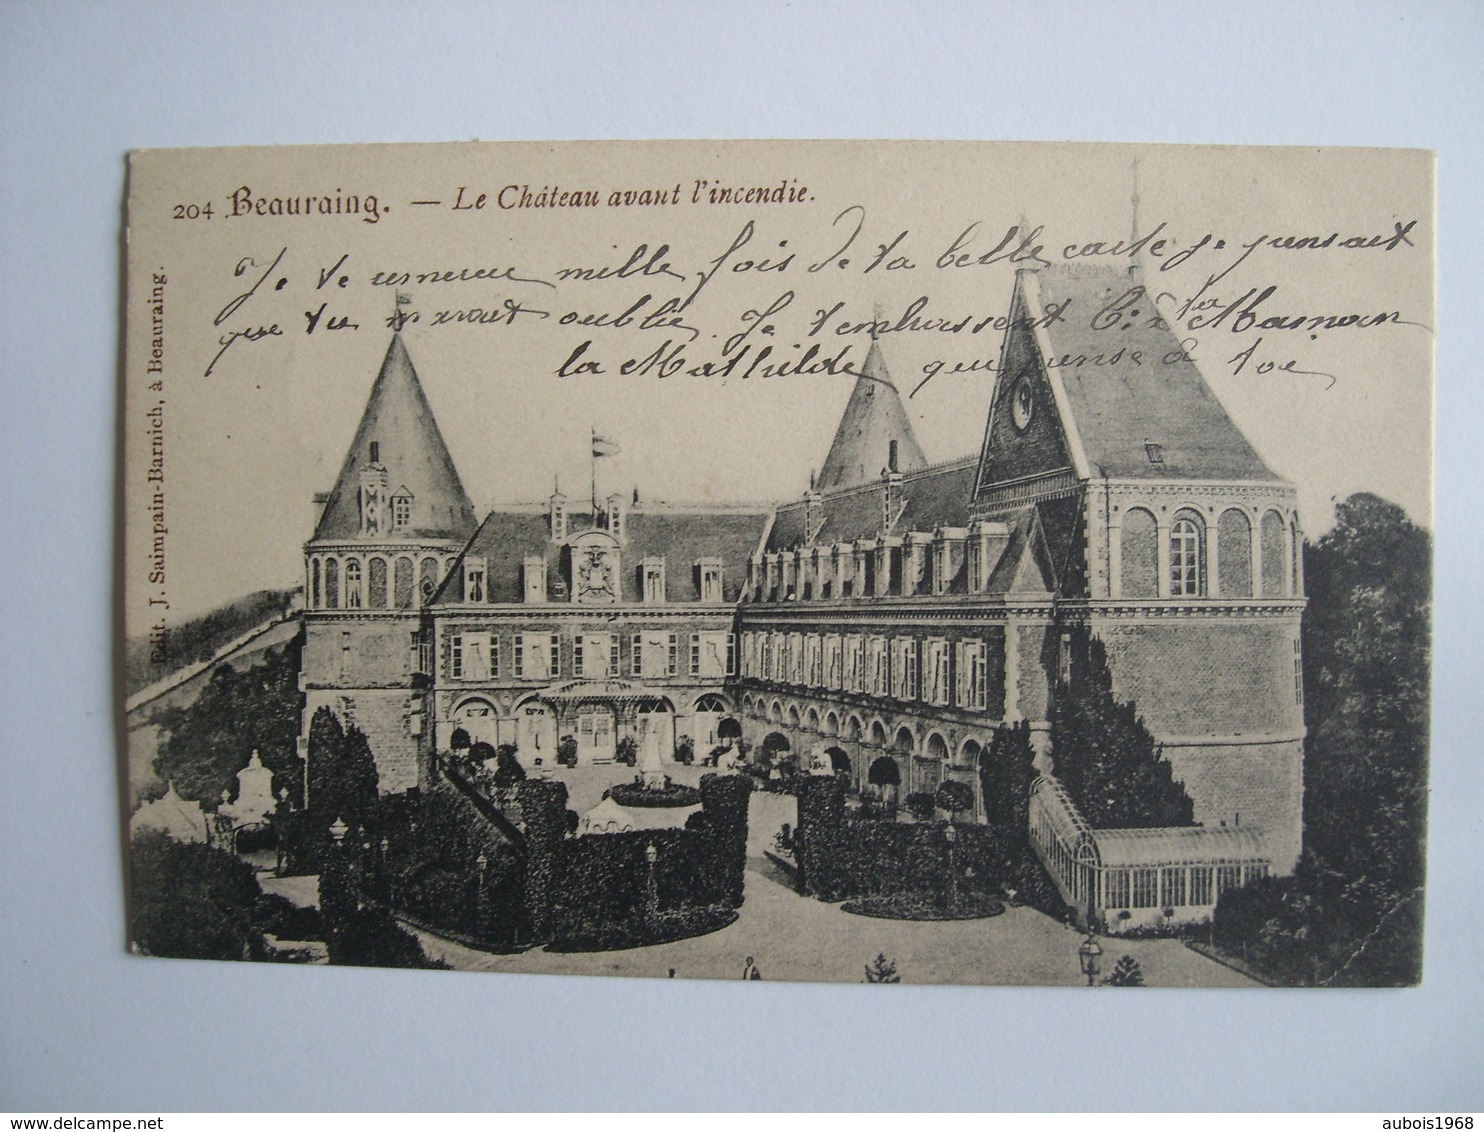 204 Beauraing. — Le Château avant l'incendie.
Je te remercie mille fois de ta belle carte je pensait
que tu m'avait oublié. Je t'embrassent ta Maman
la Mathilde qui pense à toi
Edit. J. Saimpain-Barnich, à Beauraing.
aubois1968